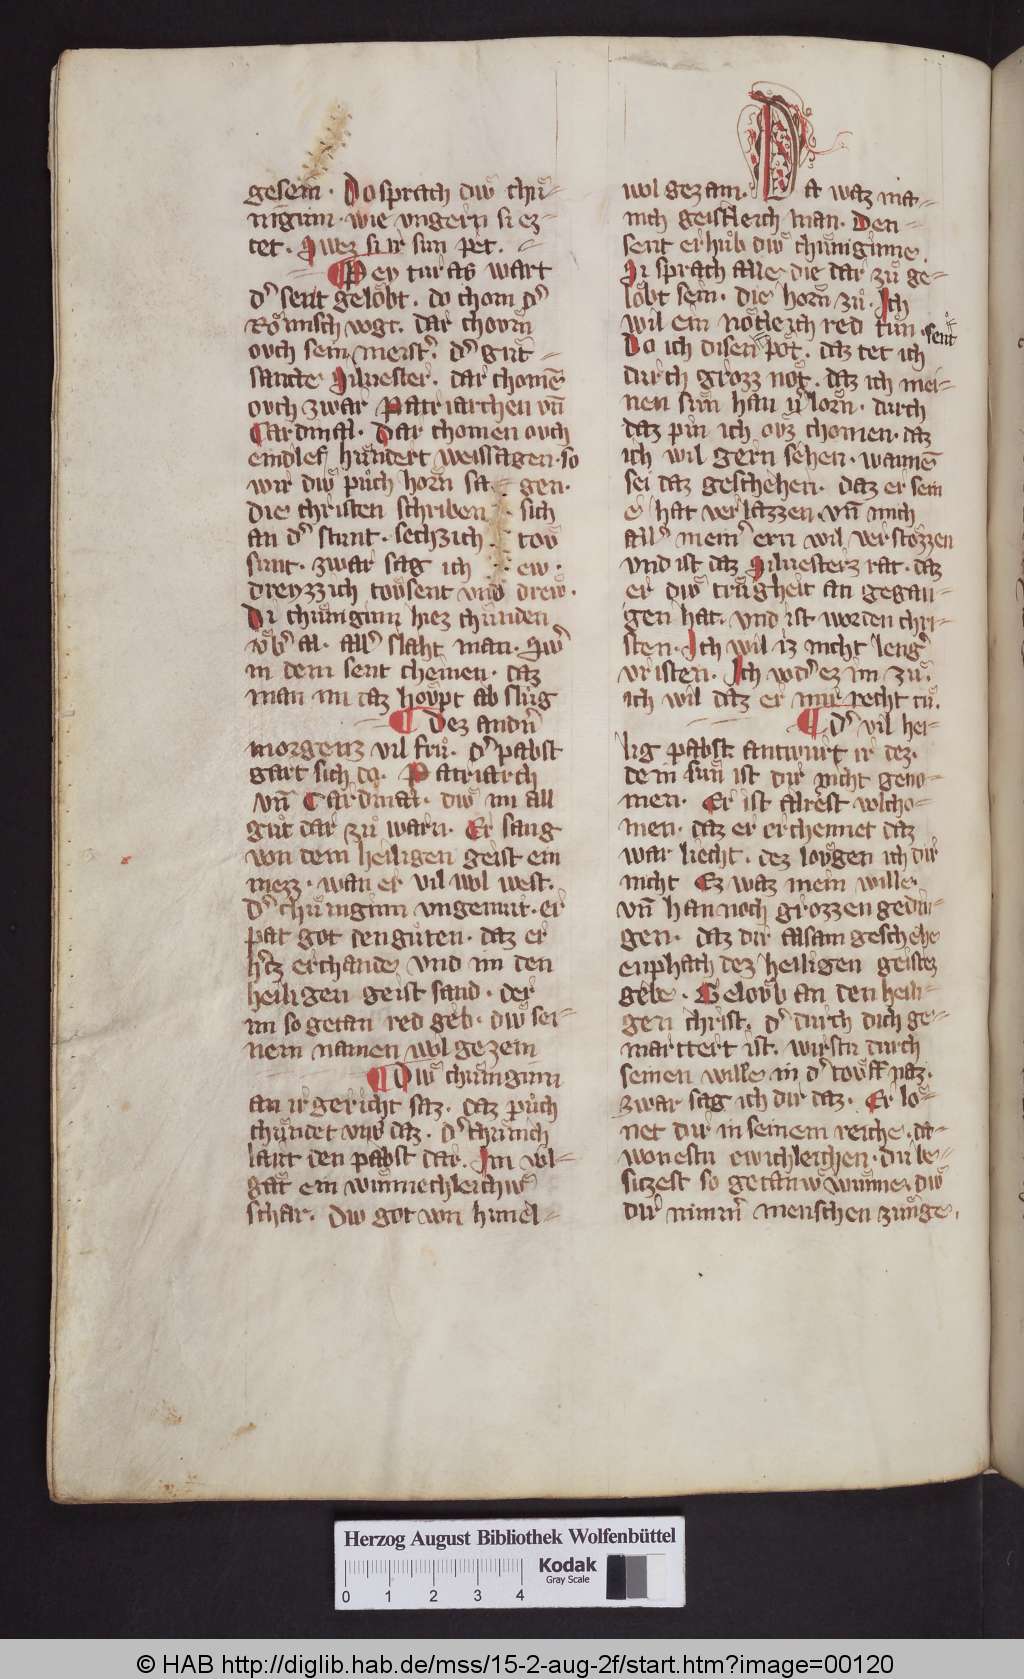 gesein · Do sprach diw chuͤ-
nigiuͤ · wie vngern si ez
tet · Swez si ir sun pet ·
Pey turas wart
d̾ sent geloͤbt · do chom d̾
Roͤmisch vogt · dar chovm̄
ovch sein meist̾ · d̾ guͤt
sancte Siluester · dar chomē
ovch zwar Patriarchen vn̄
Cardinal · Dar chomen ovch
eindlef huͤndert weissagen · so
wir diw puͤch horn̄ sa gen ·
die christen schriben sich
an d̾ stunt · sechzich tov
sunt · zwar sag ich ew ·
dreyzzich tovsent vnd drew ·
Di chuͤniginn hiez chuͤnden
vͤb̾ al · all̾ slaht man · Sw̾
in dem sent chemen · daz
man im daz hovpt ab sluͤg
Dez andn̄
morgenz vil fruͤ · d̾ pabst
gart sich do · Patriarch
vn̄ Cardinal · diw im all
guͤt dar zuͤ warn · Er sang
von dem heiligen geist ein
mezz · wan er vil wol west ·
d̾ chuͤniginn vngemuͤt · er
pat got den guͤten · daz er
h̾tz erchande vnd im den
heiligen geist sand · der
im so getan red geb · diw sei-
nem namen wol gezem
Diw chuͤniginn
an ir gericht saz · daz puͤch
chuͤndet vns daz · d̾ chuͤnich
laut den pabst dar · Im vol-
gat ein wuͤnnechleichiw̾
schar · diw got von himel-
wol gezam · Da waz ma-
nich geistleich man · Den
sent erhuͤb diw chuͤniginne ·
Si sprach alle die dar zuͤ ge-
loͤbt sein · die horn̄ zuͤ · Ich
wil ein noͤtleich red tuͤn · sent
Do ich disen pot · daz tet ich
durch grozz not · daz ich mei-
nen sun han v̾lorn̄ · durch
daz pin ich ovz chomen · daz
ich wil gern sehen · wannē
sei daz geschehen · daz er sein
e hat verlazzen · vn̄ mich
all̾ mein̾ ern wil verstozzen
vnd ist daz Siluesterz rat · daz
er diw traͤgheit an gegan-
gen hat · vnd ist worden chri-
sten · Ich wil iz nicht leng̾
vristen · Ich vod̾ ez im zuͤ ·
ich wil daz er mir recht tuͤ ·
d̾ vil hei-
lig pabst antwuͤrt ir dez ·
dein suͤn ist dir nicht geno-
men · Er ist alrest volcho-
men · daz er erchennet daz
war liecht · dez lovgen ich dir
nicht Ez waz mein wille ·
vn̄ han noch grozzen gedin-
gen · daz dir alsam geschehe
enphach dez heiligen geistez
gebe · Gelovb an den heili-
gen christ · d̾ durch dich ge-
marttert ist · wirstu durch
seinen wille in d̾ tovff naz ·
zwar sag ich dir daz · Er lo-
net dir in seinem reiche · da
wonestu ewichleichen · du be-
sitzest so getanw wuͤnne · diw
dir nimm̾ menschen zunge ·
Herzog August Bibliothek Wolfenbüttel
0 1 2 3 4
Kodak
Gray Scale
© HAB http://diglib.hab.de/mss/15-2-aug-2f/start.htm?image=00120